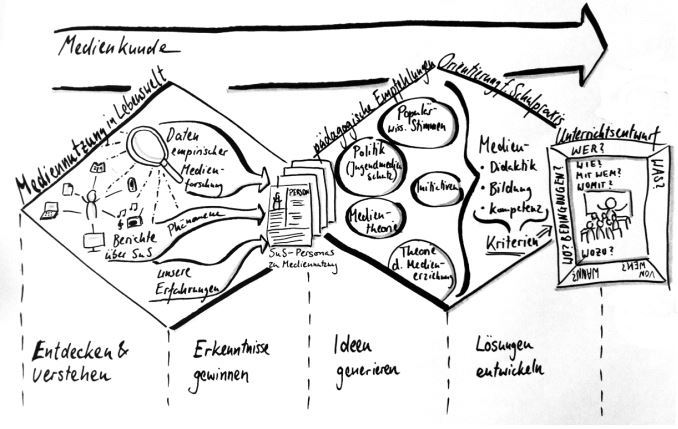 Medienkunde
Mediennutzung in Lebenswelt
Daten
empirischer
Medien-
forschung
Phänomene
Berichte
über SuS
unsere
Erfahrungen
PERSON
SuS-Personas
zu Mediennutzung
pädagogische Empfehlungen
Populär-
wiss. Stimmen
Politik
(Jugendmedien
Schutz)
Initiativen
Medien-
theorie
Theorie
d. Medien-
erziehung
Orientierung f. Schulpraxis
Medien-
• Didaktik
• Bildung
• Kompetenz
Kriterien
Unterrichtsentwurf
WER?
WIE?
MIT WEM?
WOMIT?
WAS?
WO? BEDINGUNGEN?
WOZU?
WANN?
WEM?
VON
Entdecken &
verstehen
Erkenntnisse
gewinnen
Ideen
generieren
Lösungen
entwickeln